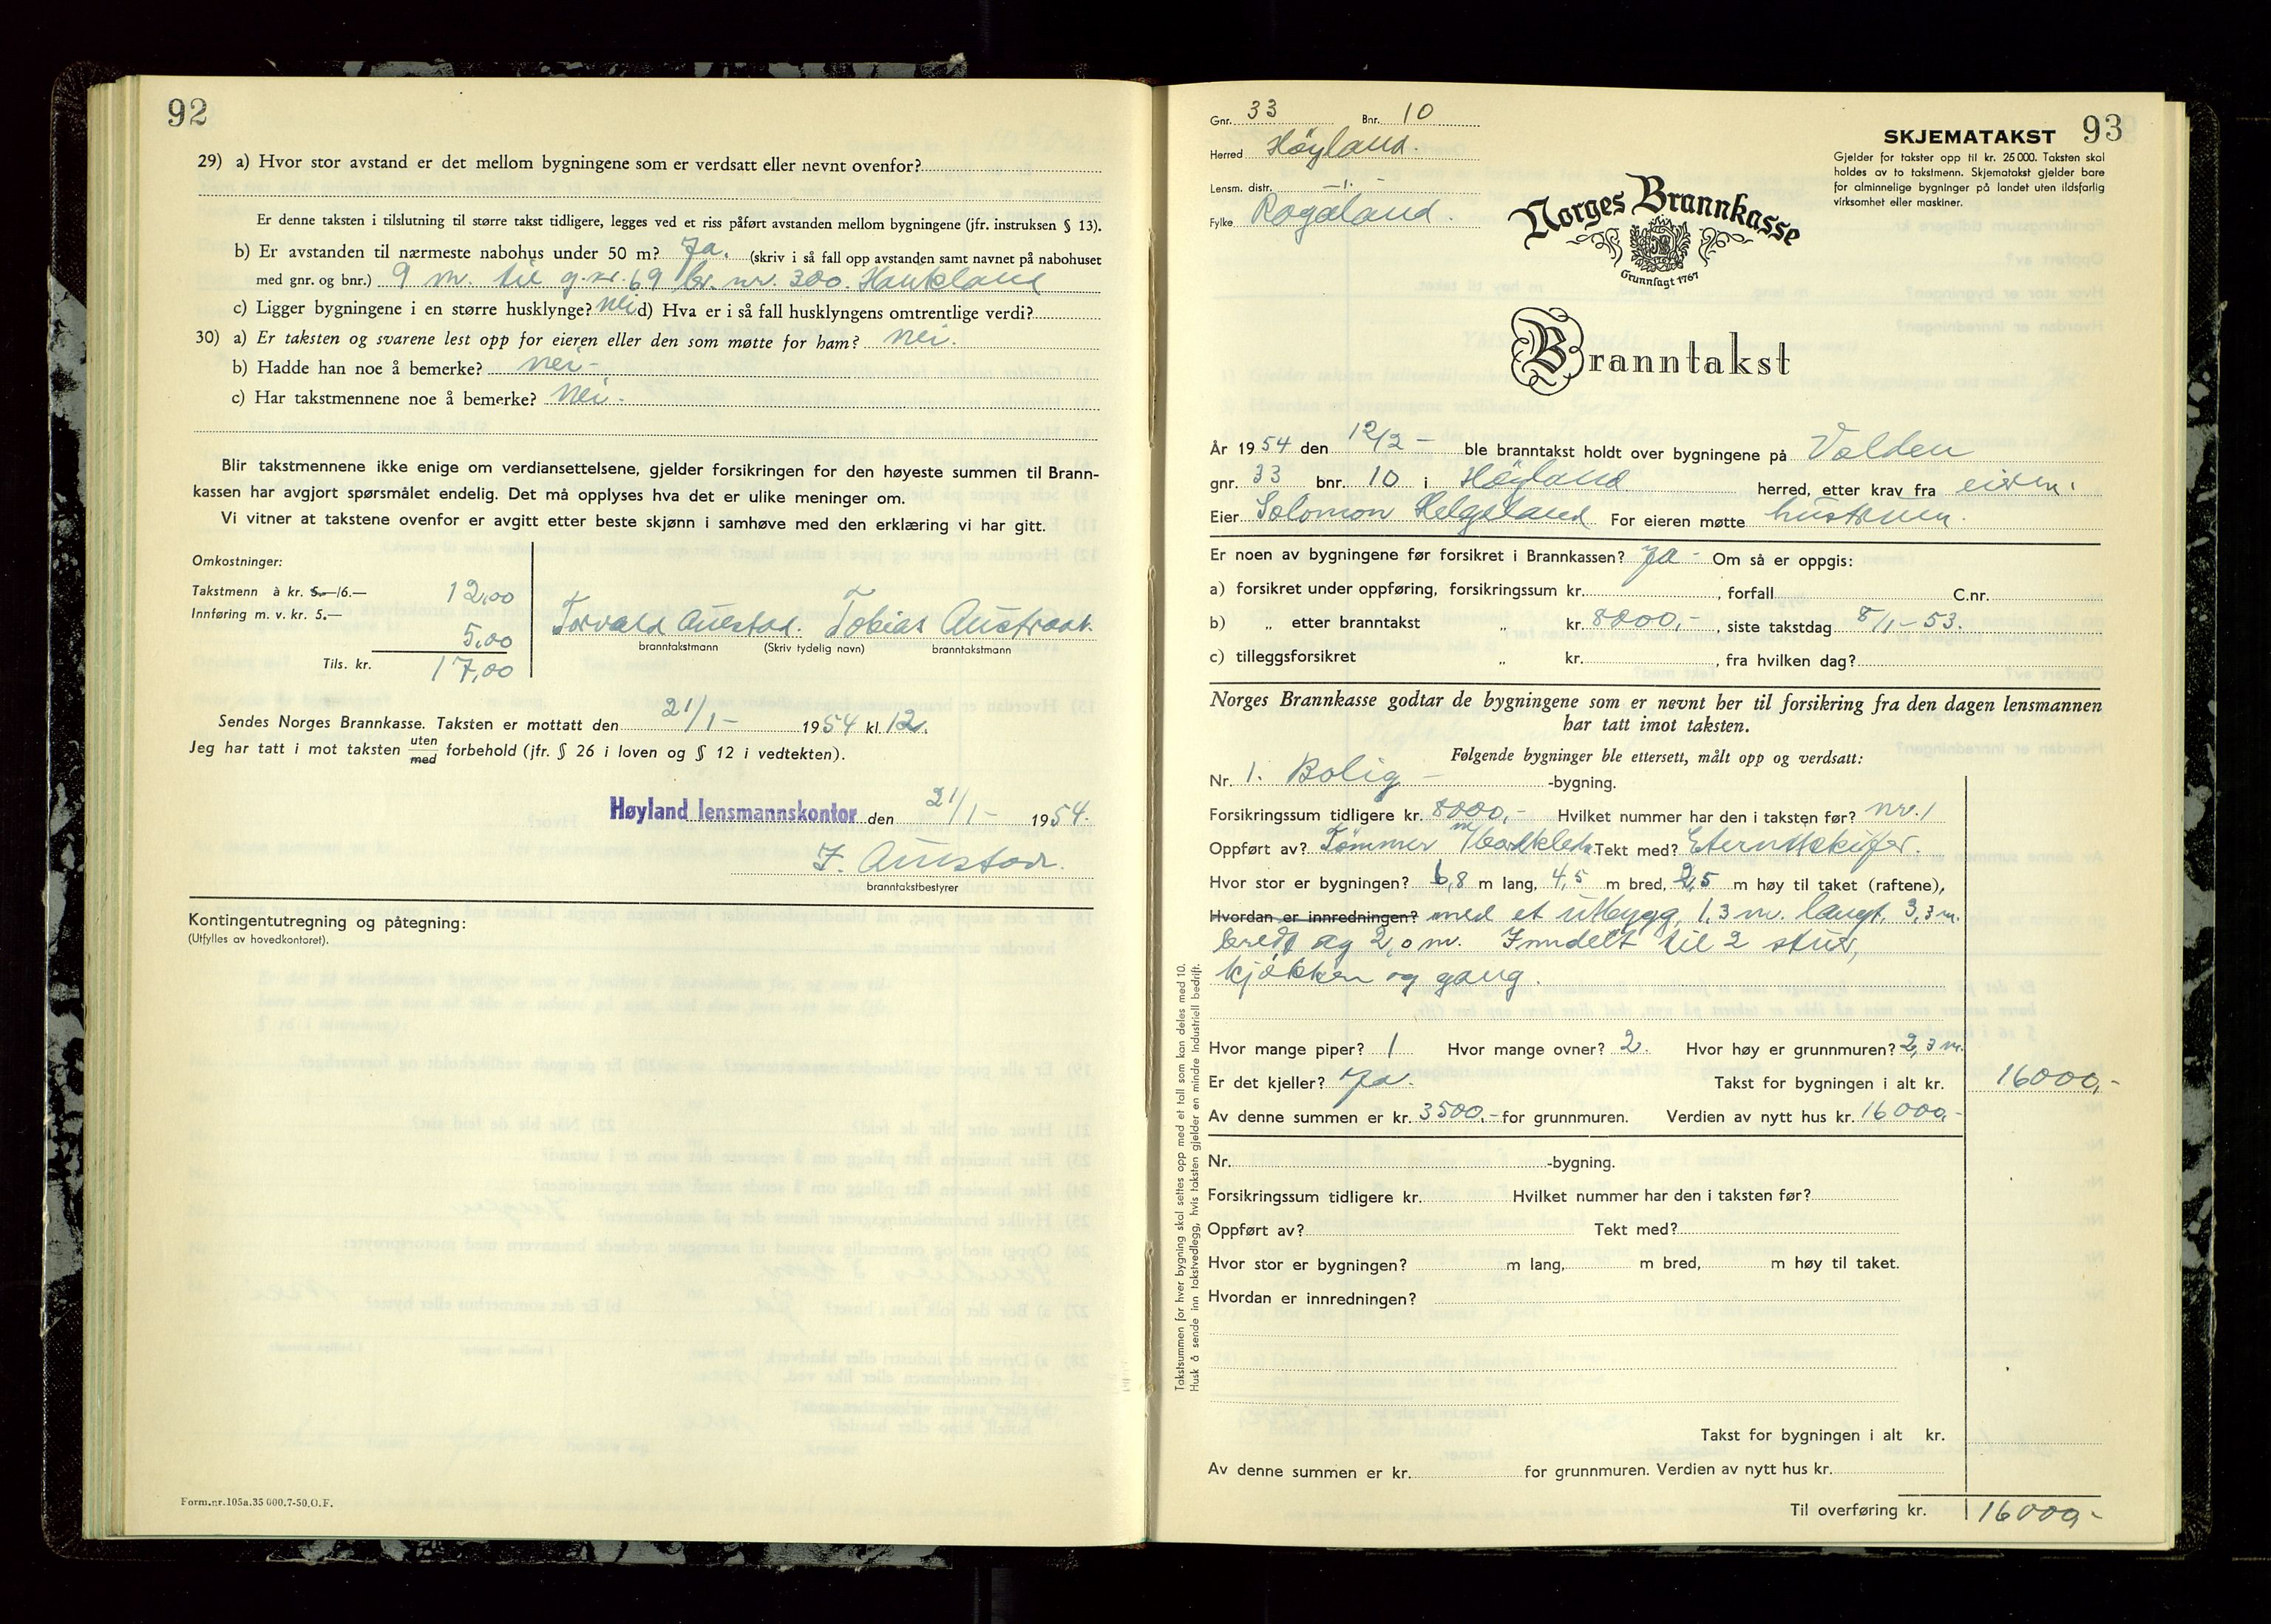 92
29) a) Hvor stor avstand er det mellom bygningene som er verdsatt eller nevnt ovenfor?
Er denne taksten i tilslutning til større takst tidligere, legges ved et riss påført avstanden mellom bygningene (jfr. instruksen § 13).
b) Er avstanden til nærmeste nabohus under 50 m? Ja. (skriv i så fall opp avstanden samt navnet på nabohuset
med gnr. og bnr.) 9 m. til g.nr. 69 br. nr. 300. Haukland
c) Ligger bygningene i en større husklynge? nei d) Hva er i så fall husklyngens omtrentlige verdi?
30) a) Er taksten og svarene lest opp for eieren eller den som møtte for ham? nei.
b) Hadde han noe å bemerke? nei -
c) Har takstmennene noe å bemerke? nei -
Blir takstmennene ikke enige om verdiansettelsene, gjelder forsikringen for den høyeste summen til Brann-
kassen har avgjort spørsmålet endelig. Det må opplyses hva det er ulike meninger om.
Vi vitner at takstene ovenfor er avgitt etter beste skjønn i samhøve med den erklæring vi har gitt.
Omkostninger:
Takstmenn à kr. 5.—/6.— 12,00
Innføring m. v. kr. 5.— 5,00
Tils. kr. 17,00
Torvald Austad. Tobias Austraat.
branntakstmann (Skriv tydelig navn) branntakstmann
Sendes Norges Brannkasse. Taksten er mottatt den 21/1 - 1954 kl. 12.
Jeg har tatt i mot taksten uten med forbehold (jfr. § 26 i loven og § 12 i vedtekten).
Høyland lensmannskontor den 21/1 - 1954.
T. Austad.
branntakstbestyrer
Kontingentutregning og påtegning:
(Utfylles av hovedkontoret).
Form.nr.105a.35 000.7-50.O.F.
Gnr. 33 Bnr. 10
SKJEMATAKST 93
Herred Höyland.
Gjelder for takster opp til kr. 25 000. Taksten skal
holdes av to takstmenn. Skjematakst gjelder bare
for alminnelige bygninger på landet uten ildsfarlig
virksomhet eller maskiner.
Lensm. distr. —"—
Fylke Rogaland.
Norges Brannkasse
Grunnlagt 1767
Branntakst
År 1954 den 12/2 - ble branntakst holdt over bygningene på Valden
gnr. 33 bnr. 10 i Höyland herred, etter krav fra eieren.
Eier Solomon Helgeland For eieren møtte hustruen.
Er noen av bygningene før forsikret i Brannkassen? Ja - Om så er oppgis:
a) forsikret under oppføring, forsikringssum kr. , forfall C.nr.
b) „ etter branntakst „ kr. 8000,- , siste takstdag 8/1 - 53.
c) tilleggsforsikret „ kr. , fra hvilken dag?
Norges Brannkasse godtar de bygningene som er nevnt her til forsikring fra den dagen lensmannen
har tatt imot taksten.
Følgende bygninger ble ettersett, målt opp og verdsatt:
Nr. 1. Bolig - -bygning.
Forsikringssum tidligere kr. 8000,- Hvilket nummer har den i taksten før? nr. 1
Oppført av? Tömmer m/bordkledn. Tekt med? Eternittskifer.
Hvor stor er bygningen? 6,8 m lang, 4,5 m bred, 2,5 m høy til taket (raftene),
Hvordan er innredningen? med et utbygg, 1,3 m. langt, 3,3 m.
bredt og 2,0 m. Inndelt til 2 stuer,
kjökken og gang.
Hvor mange piper? 1 Hvor mange ovner? 2. Hvor høy er grunnmuren? 2,3 m.
Er det kjeller? Ja. Takst for bygningen i alt kr. 16000,-
Av denne summen er kr. 3500,- for grunnmuren. Verdien av nytt hus kr. 16000,-
Nr. -bygning.
Forsikringssum tidligere kr. Hvilket nummer har den i taksten før?
Oppført av? Tekt med?
Hvor stor er bygningen? m lang, m bred, m høy til taket.
Hvordan er innredningen?
Takst for bygningen i alt kr.
Av denne summen er kr. for grunnmuren. Verdien av nytt hus kr.
Til overføring kr. 16000,-
Takstsummen for hver bygning skal settes opp med et tall som kan deles med 10.
Husk å sende inn takstvedlegg, hvis taksten gjelder en mindre industriell bedrift.